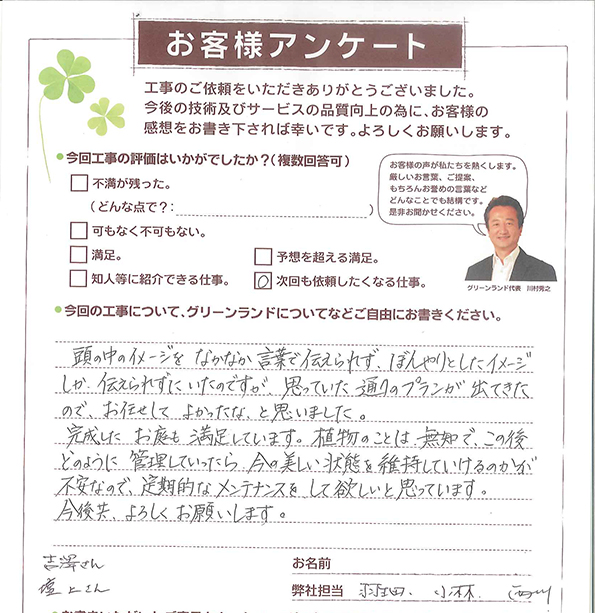 お客様アンケート
工事のご依頼をいただきありがとうございました。
今後の技術及びサービスの品質向上の為に、お客様の
感想をお書き下されば幸いです。よろしくお願いします。
今回工事の評価はいかがでしたか？（複数回答可）
不満が残った。
（どんな点で？：　　　）
可もなく不可もない。
満足。
予想を超える満足。
知人等に紹介できる仕事。
次回も依頼したくなる仕事。
お客様の声が私たちを熱くします。
厳しいお言葉、ご提案、
もちろんお誉めの言葉など
どんなことでも結構です。
是非お聞かせください。
グリーンランド代表　川村売之
今回の工事について、グリーンランドについてなどご自由にお書きください。
頭の中のイメージを なかなか言葉で伝えられず、ぼんやりとしたイメージ
しか、伝えられずにいたのですが、思っていた 通りのプランが 出てきた
ので、お任せして よかったな、と思いました。
完成した お庭も 満足しています。植物のことは 無知で、この後
どのように 管理していったら、今の美しい 状態を維持していけるのかが
不安なので、定期的な メンテナンスを して欲しいと思っています。
今後共、よろしく お願いします。
吉澤さん
上さん
お名前
弊社担当　羽田.　小林.　西川